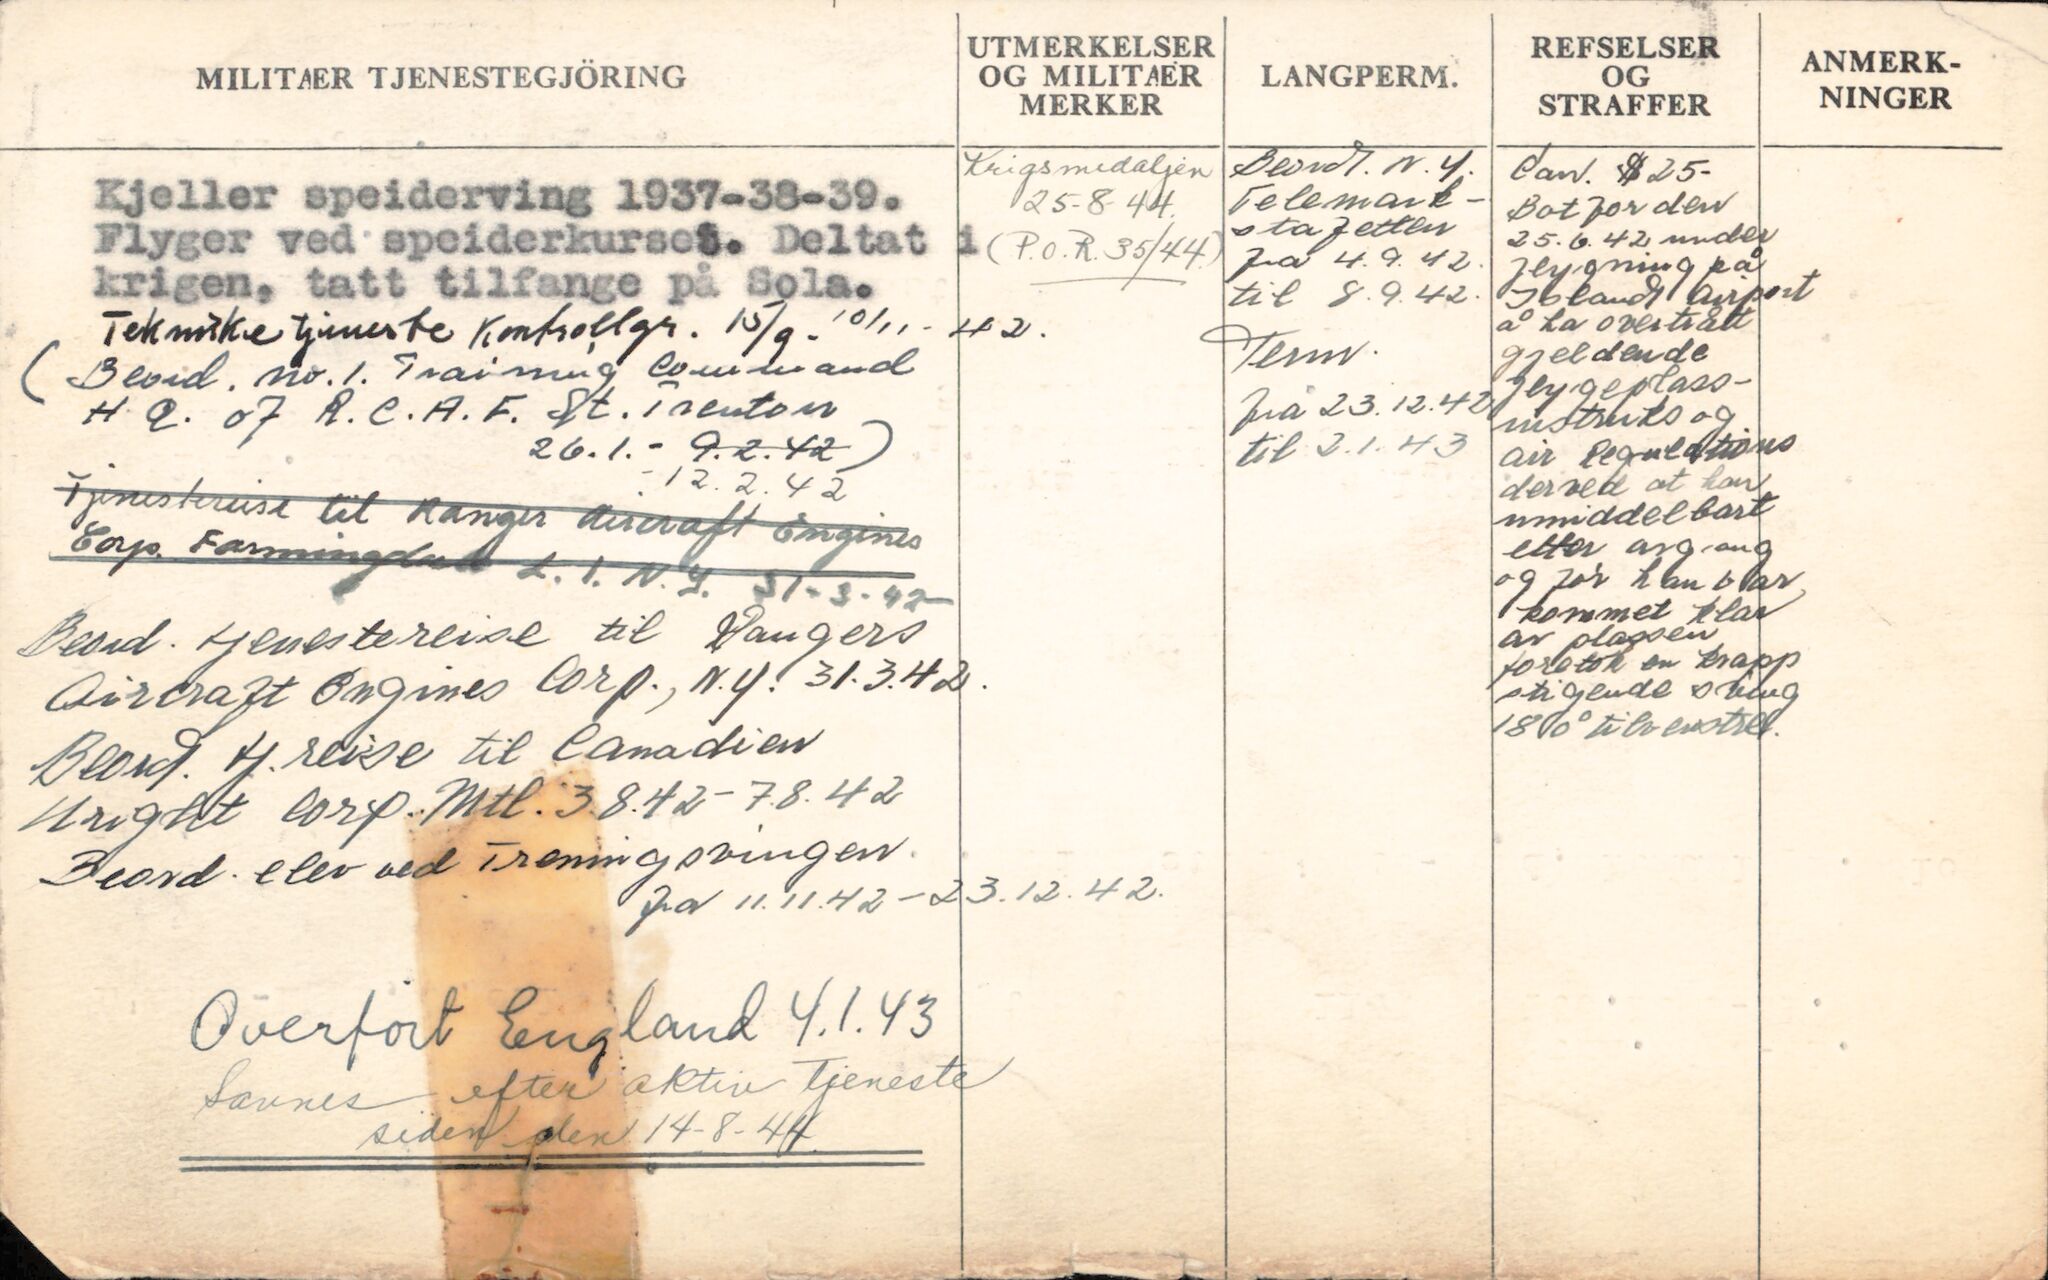 MILITÆR TJENESTEGJÖRING
UTMERKELSER
OG MILITÆR
MERKER
LANGPERM.
REFSELSER
OG
STRAFFER
ANMERK-
NINGER
Kjeller speiderving 1937-38-39.
Flyger ved speiderkurset. Deltat i
krigen, tatt tilfange på Sola.
Tekniske tjeneste Kontrollgr. 15/9.-10/11-42.
(Beord. No. 1. Training Command
H.Q. of R.C.A.F. St. Trenton
26.1.- 9.2.42)
-12.2.42
Tjenestereise til Ranger Aircraft Engines
Corp. Farmingdale L.I. N.Y. 31-3-42-
Beord. tjenestereise til Rangers
Aircraft Engines Corp., N.Y. 31.3.42.
Beord. tj. reise til Canadien
Wright Corp. Mtl. 3.8.42-7.8.42
Beord. elev ved Treningsvingen
fra 11.11.42-23.12.42.
Overfört England 4.1.43
Savnes efter aktiv tjeneste
siden den 14-8-44
Krigsmedaljen
25-8-44.
(P.O.R. 35/44)
Beord. N.Y.
Telemark-
stafetten
fra 4.9.42.
til 8.9.42.
Perm.
fra 23.12.42
til 2.1.43
Can. $25-
Bot for den
25.6.42 under
flygning på
Island Airport
å ha overtrått
gjeldende
flygeplass-
instruks og
air Regulations
derved at han
umiddelbart
etter avgang
og för han var
kommet klar
av plassen
foretok en krapp
stigende sving
180° tilvenstre.